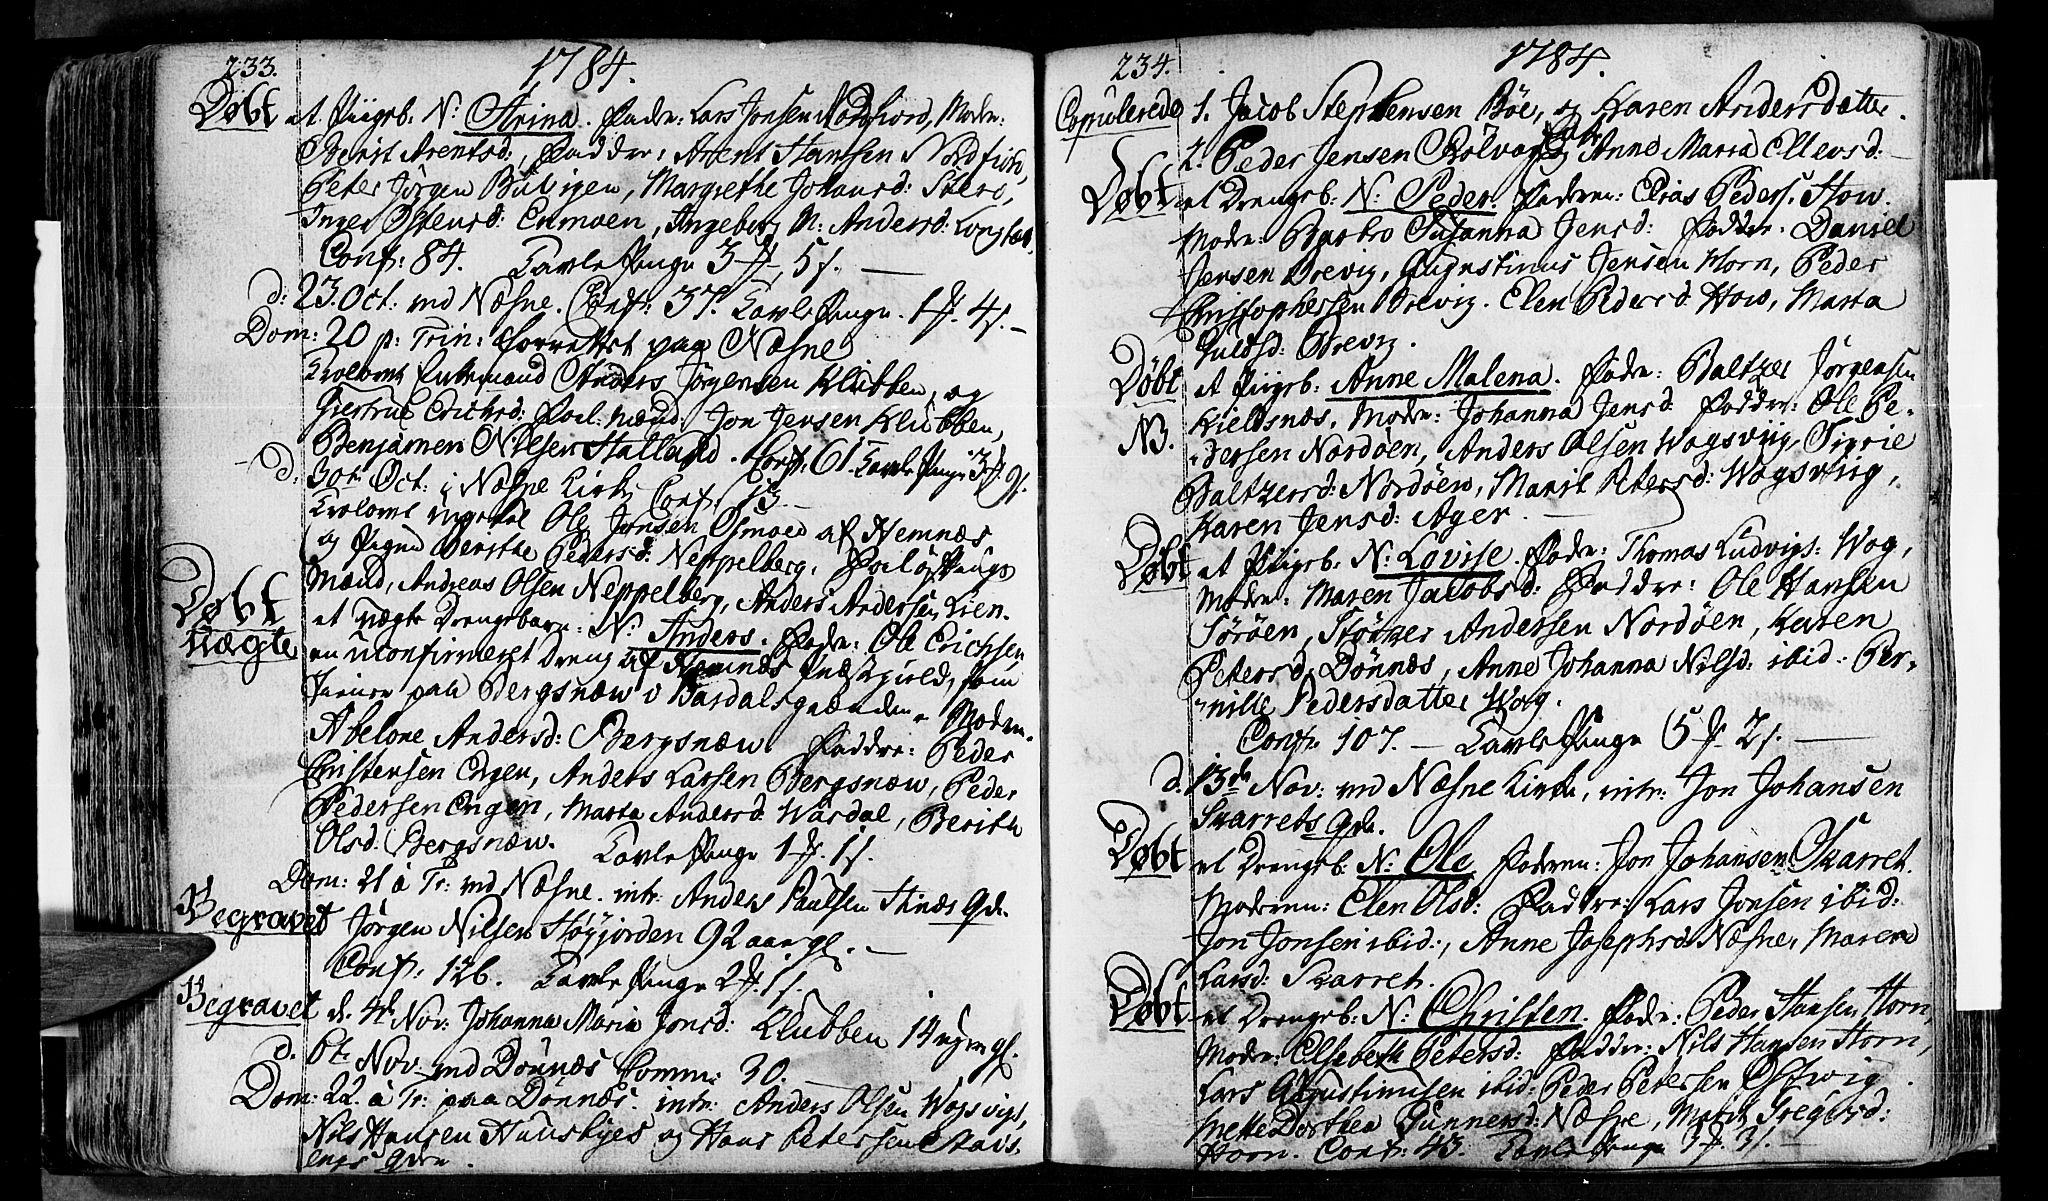 233. 1784.
Døbt et Piigeb. N: Strina. Fadr: Lars Jonsen Nordfiord, Modr:
Berit Arentsd:, Faddr: Arent Hansen Nordfiord,
Peter Jörgen Bülvigen, Margrethe Johansd:
Inger Ostensd: Enmoen, Angeberg M: Andersd:
Conf: 84. Tavle Penge 3 5 s. —
d: 23. Oct. ved Næsne. Conf: 37. Tavle Penge. 1 4 s. —
Dom: 20 p: Trin: forrettet paa Næsne
Trolovet Enkemand Anders Jörgensen Klubben, og
Giertrue Erichsd: Forl. mænd Jon Jensen Klubben,
Benjamen Nilsen Halland. Conf: 61. Tavle Penge 3 9 s.
d. 30te Oct: i Næsne Kirke Conf. 13.
Trolovet Ole Jensen Osmoed af Hemnæs
og Pigen Berithe Pedersd: Neppelberg,
Mænd, Andreas Olsen Neppelberg, Anders Andersen Lien.
Døbt uægte et uægte Drengebarn: N: Anders. Fadr: Ole Erichsen,
en uconfirmeret dreng af Hemnæs Præstegield, som
tiener paa Bergsnæw v Bardalsgrænden. Moder.
Abelone Andersd: Bergsnæw. Faddre: Peder
Christensen Engen, Anders Larsen Bergsnæw, Peder
Pedersen Engen, Marta Andersd. Wardal, Berith
Olsd: Bergsnæw. Tavle Penge 1 1 s.
Dom: 21 à Tr: ved Næsne. intr: Anders Paulsen Qde.
Begravet Jörgen Nilsen 92 aar gl. —
Conf: 126. Tavle Penge 2 1 s.
Begravet d. 4d Nov: Johanna Maria Jonsd: Klubben 14 uger gl.
d. 6t. Nov. ved Dønnæs Comm: 30. —
Dom: 22. à Tr: paa Dønnæs. intr: Anders Olsen Wogsvigs,
Nils Hansen og Hans Petersen

234. 1784.
Copulerede 1. Jacob Stephensen Böe, og Karen Andersdatter.
2. Peder Jensen og Anne Maria Ellevsd: —
Døbt et Drengeb. N: Peder. Fadren: Elias Peders. How.
Modr: Barbro Susanna Jensd: Faddr: Daniel
Jensen Brevig, Augustinus Jensen Horn, Peder
Christophersen Brevig. Elen Pedersd. How, Marta
Brevig.
Døbt et Piigeb: Anne Malena. Fadr: Baltzer Jörgensen
NB. Kieldsnæs, Modr: Johanna Jensd Faddr: Ole Pe-
dersen Nordöen, Anders Olsen Wogsviig, Sirrie
Baltzersd: Nordöen, Marit Petersd: Wogsviig,
Karen Jensd: Ager. —
Døbt et Piigeb: N: Lovise. Fadr: Thomas Ludvigs: Wog,
Modr: Maren Jacobsd: Faddr: Ole Hansen
Töröen, Andersen Nordöen, Karen
Petersd: Dönnæs, Anne Johanna Nilsd: ibid: Per-
nille Pedersdatter Wog.
Conf: 107. — Tavle Penge 5 2 s. —
d. 13de Nov: ved Næsne Kirke, intr: Jon Johansen
Skarrets Qde.
Døbt et Drengeb: N: Ole Fadren: Jon Johansen Skarret.
Moderen: Elen Olsd: Faddre: Lars Jonsen ibid:
Jon Jonsen ibid:, Anne Josephsd: Næsne, Maren
Larsd: Skarret.
Døbt et Drengeb: N: Christen. Fadr: Peder Hansen Horn,
Modr: Elsebeth Petersd: Faddr: Nils Hansen Horn,
Lars Augustinusen ibid: Peder Petersen
Mette Dorthea Gunnersd: Næsne, Marit
Horn. Conf: 43. Tavle Penge 3 3 s. —